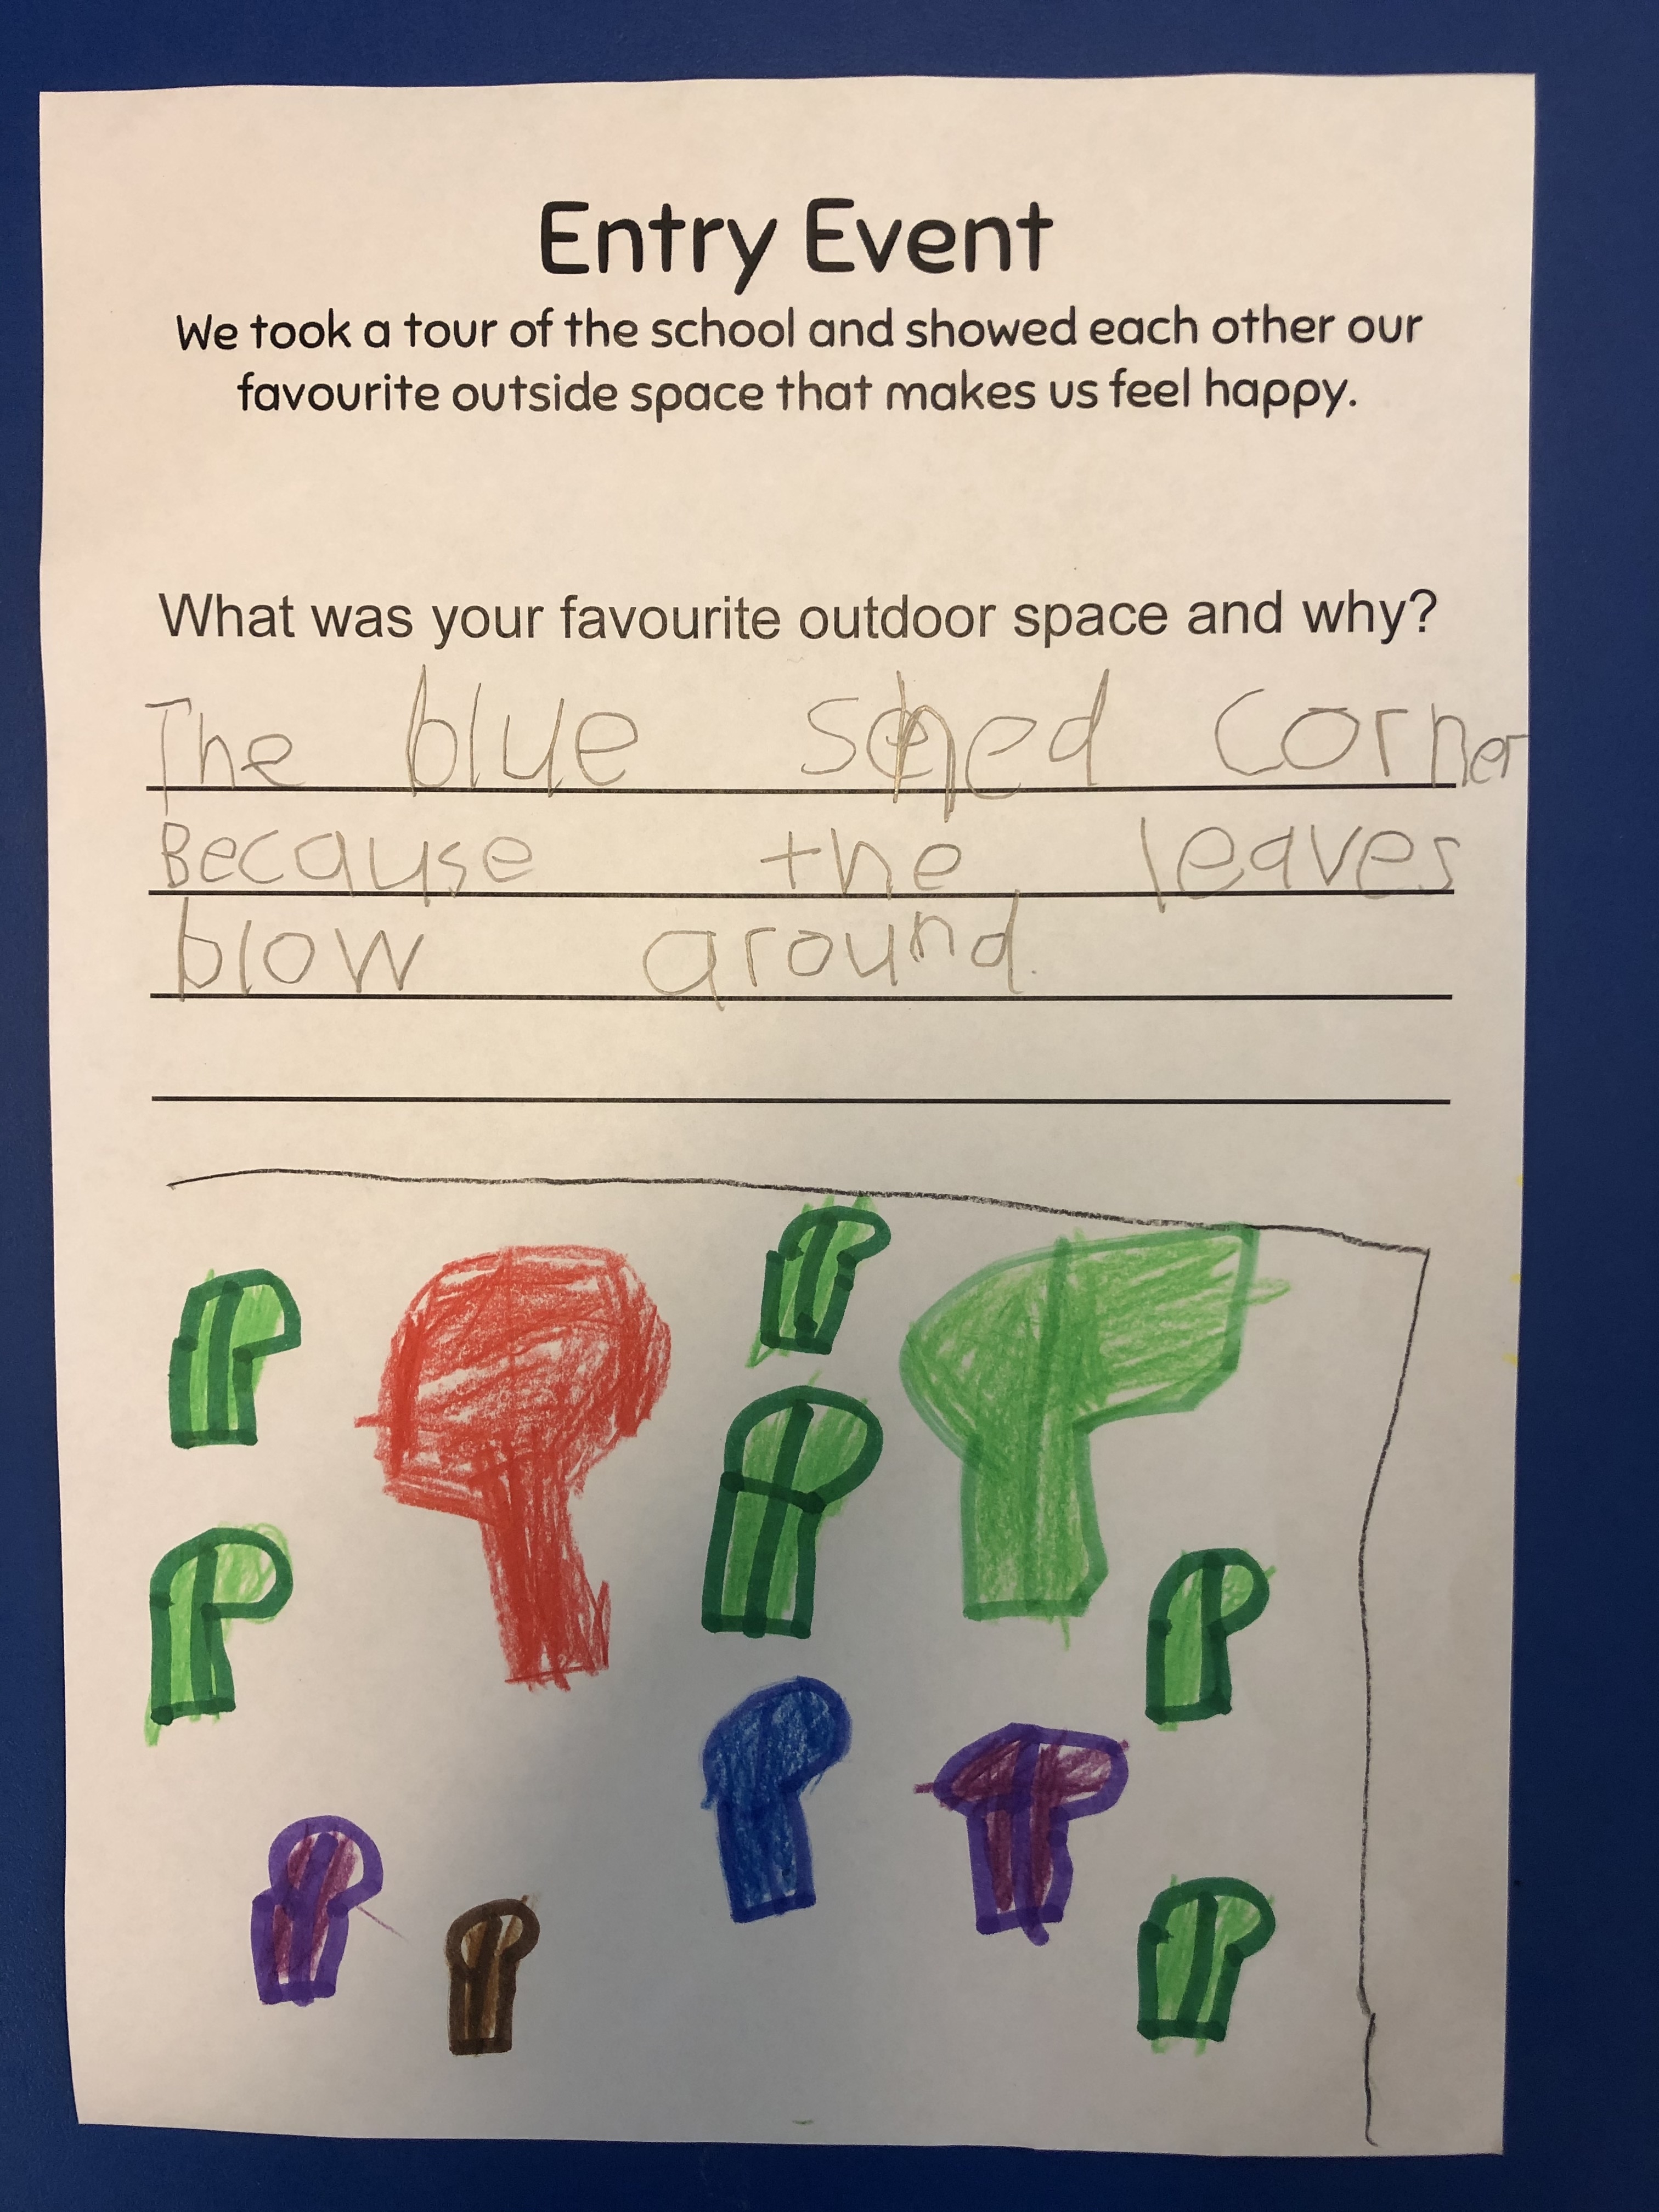 Entry Event
We took a tour of the school and showed each other our
favourite outside space that makes us feel happy.
What was your favourite outdoor space and why?
The blue shed corner
Because the leaves
blow around.